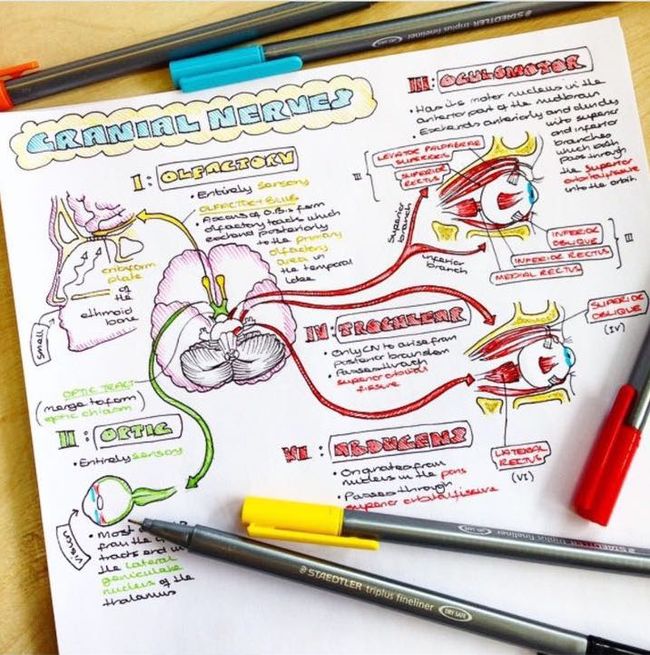 STAEDTLER triplus fineliner
CRANIAL NERVES
I: OLFACTORY
• Entirely sensory
OLFACTORY BULB
• Axons of O.B.s form
olfactory tracts which
extend posteriorly
to the primary
olfactory
area in
the temporal
lobe
cribiform
plate
of the
ethmoid
bone
Smell
III: OCULOMOTOR
• Has its motor nucleus in the
anterior part of the midbrain
• Extends anteriorly and divides
into superior
and inferior
branches
which both
pass through
the superior
orbital fissure
into the orbit
LEVATOR PALPABRAE
SUPERIORIS
SUPERIOR
RECTUS
III
INFERIOR
OBLIQUE
INFERIOR RECTUS
MEDIAL RECTUS
III
Superior
branch
inferior
branch
IV: TROCHLEAR
• Only CN to arise from
posterior brainstem
• Passes through
superior orbital
fissure
SUPERIOR
OBLIQUE
(IV)
OPTIC TRACT
(merge to form
optic chiasm)
II: OPTIC
• Entirely sensory
vision
• Most
from the
tracts end in
the Lateral
geniculate
nucleus of the
thalamus
VI: ABDUCENS
• Originates from
nucleus in the pons
• Passes through
superior orbital fissure
LATERAL
RECTUS
(VI)
STAEDTLER triplus fineliner
DRY SAFE